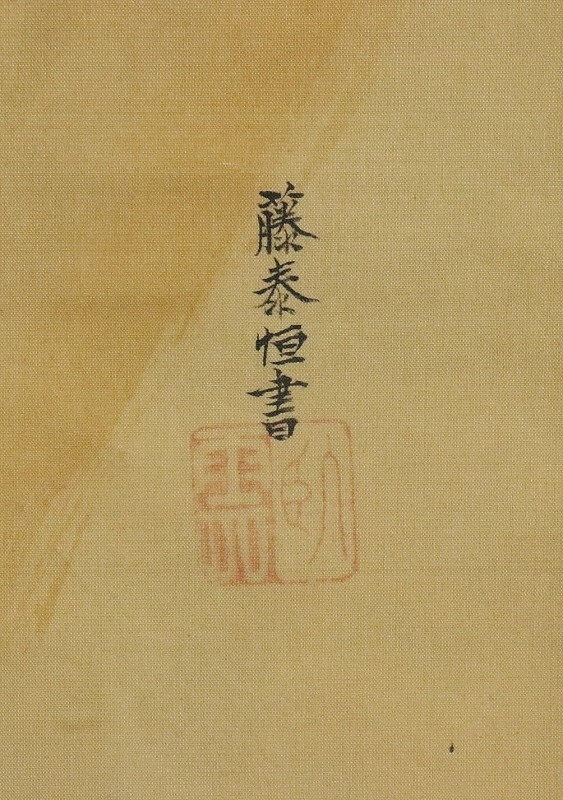 藤泰恒書